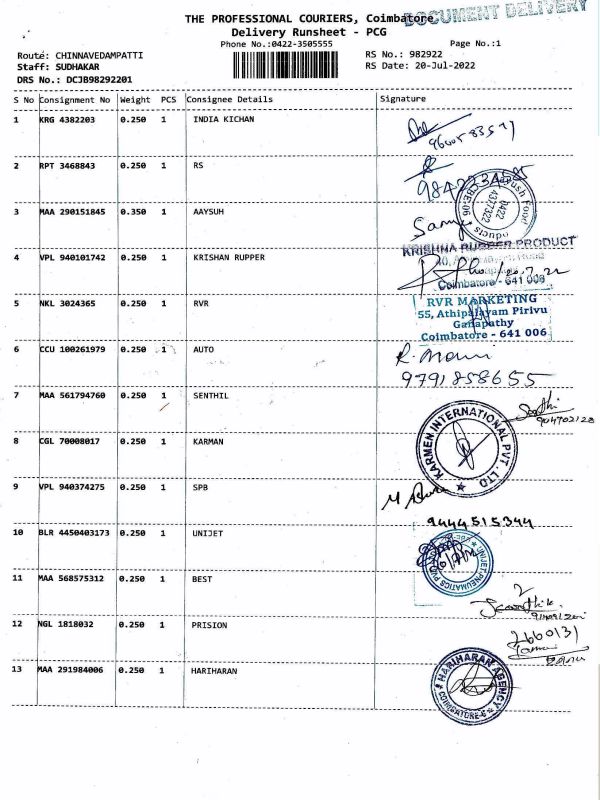 DOCUMENT DELIVERY
THE PROFESSIONAL COURIERS, Coimbatore
Delivery Runsheet - PCG
Phone No.:0422-3505555
Page No.:1
Route: CHINNAVEDAMPATTI
RS No.: 982922
Staff: SUDHAKAR
RS Date: 20-Jul-2022
DRS No.: DCJB98292201
S No Consignment No Weight PCS Consignee Details Signature
1 KRG 4382203 0.250 1 INDIA KICHAN
2 RPT 3468843 0.250 1 RS
3 MAA 290151845 0.350 1 AAYSUH
0422
4377322
KRISHNA RUPPER PRODUCT
4 VPL 940101742 0.250 1 KRISHAN RUPPER
Coimbatore - 641 006
5 NKL 3024365 0.250 1 RVR
RVR MARKETING
55, Athipalayam Pirivu
Ganapathy
Coimbatore - 641 006
6 CCU 100261979 0.250 1 AUTO
9791858655
7 MAA 561794760 0.250 1 SENTHIL
8 CGL 70008017 0.250 1 KARMAN
KARMEN INTERNATIONAL PVT. LTD
9 VPL 940374275 0.250 1 SPB
9444515344
10 BLR 4450403173 0.250 1 UNIJET
UNIJET PNEUMATICS
11 MAA 568575312 0.250 1 BEST
12 NGL 1818032 0.250 1 PRISION
13 MAA 291984006 0.250 1 HARIHARAN
HARIHARAN AGENCY
COIMBATORE-6